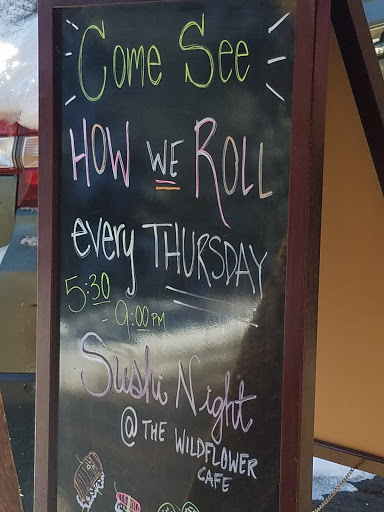 Come See
HOW WE ROLL
every THURSDAY
5:30
- 9:00 PM
Sushi Night
@ THE WILDFLOWER
CAFE